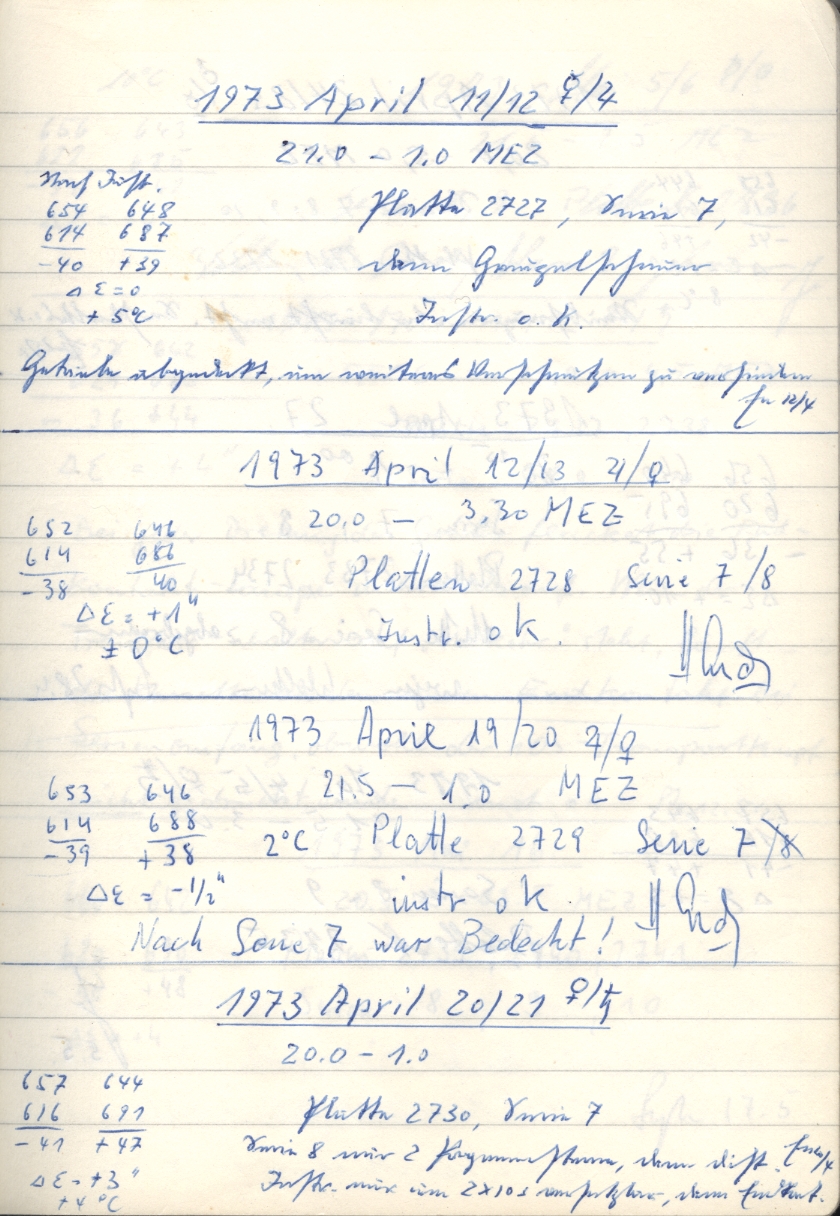 1973 April 11/12 ♀/4
21.0 – 1.0 MEZ
Nach Just.
654 648
614 687
-40 +39
Δε=0
+5°C
Platte 2727, Serie 7,
dann Graupelschauer
Instr. o. K.
Getriebe abgedeckt, um weiteres Verschmutzen zu verhindern
12/4
1973 April 12/13 4/♀
20.0 – 3.30 MEZ
652 646
614 686
-38 40
Δε = +1"
±0°C
Platten 2728 Serie 7/8
Instr. ok.
1973 April 19/20 4/♀
21.5 – 1.0 MEZ
653 646
614 688
-39 +38
2°C Platte 2729 Serie 7
Δε = -1/2"
instr ok.
Nach Serie 7 war Bedeckt!
1973 April 20/21 ♀/♄
20.0 – 1.0
657 644
616 691
-41 +47
Δε = +3"
+4°C
Platte 2730, Serie 7
Serie 8 nur 2 Programmsterne, dann dist.
Instr. nur um 2x10s versetzbar, dann